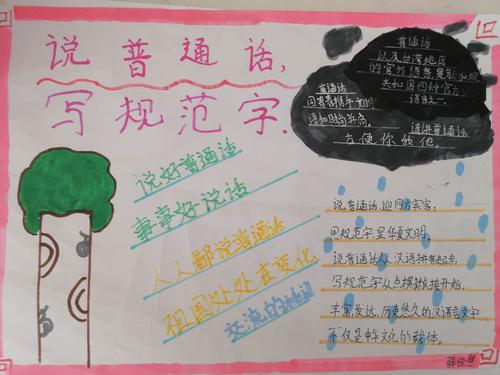 说普通话,
写规范字.
普通话
以及台湾地区
的官方语言是新加坡
共和国四种官方
语言之一.
普通话
同青春携手,文明
语和时尚并肩.
请讲普通话
方便你我他.
说好普通话
事事好说话
人人都说普通话
祖国处处在变化
交流的
说普通话,迎四方宾客;
用规范字,显华夏文明.
说普通话从汉语拼音起步,
写规范字从点横撇捺开始.
丰富发达,历史悠久的汉语言文字
不仅是中华文化的载体.